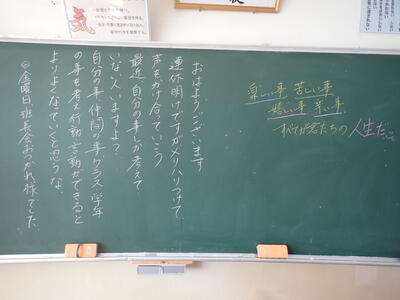 おはようございます
連休明けですがメリハリつけて
声をかけ合っていこう
最近自分の事しか考えて
いない人いますよ?
自分の事仲間の事クラス・学年
の事を考え行動言動ができると
よりよくなっていくと思うな。
◎金曜日班長会おつかれ様でした
楽しい事 苦しい事
嬉しい事 辛い事
すべてが君たちの人生だ。
気